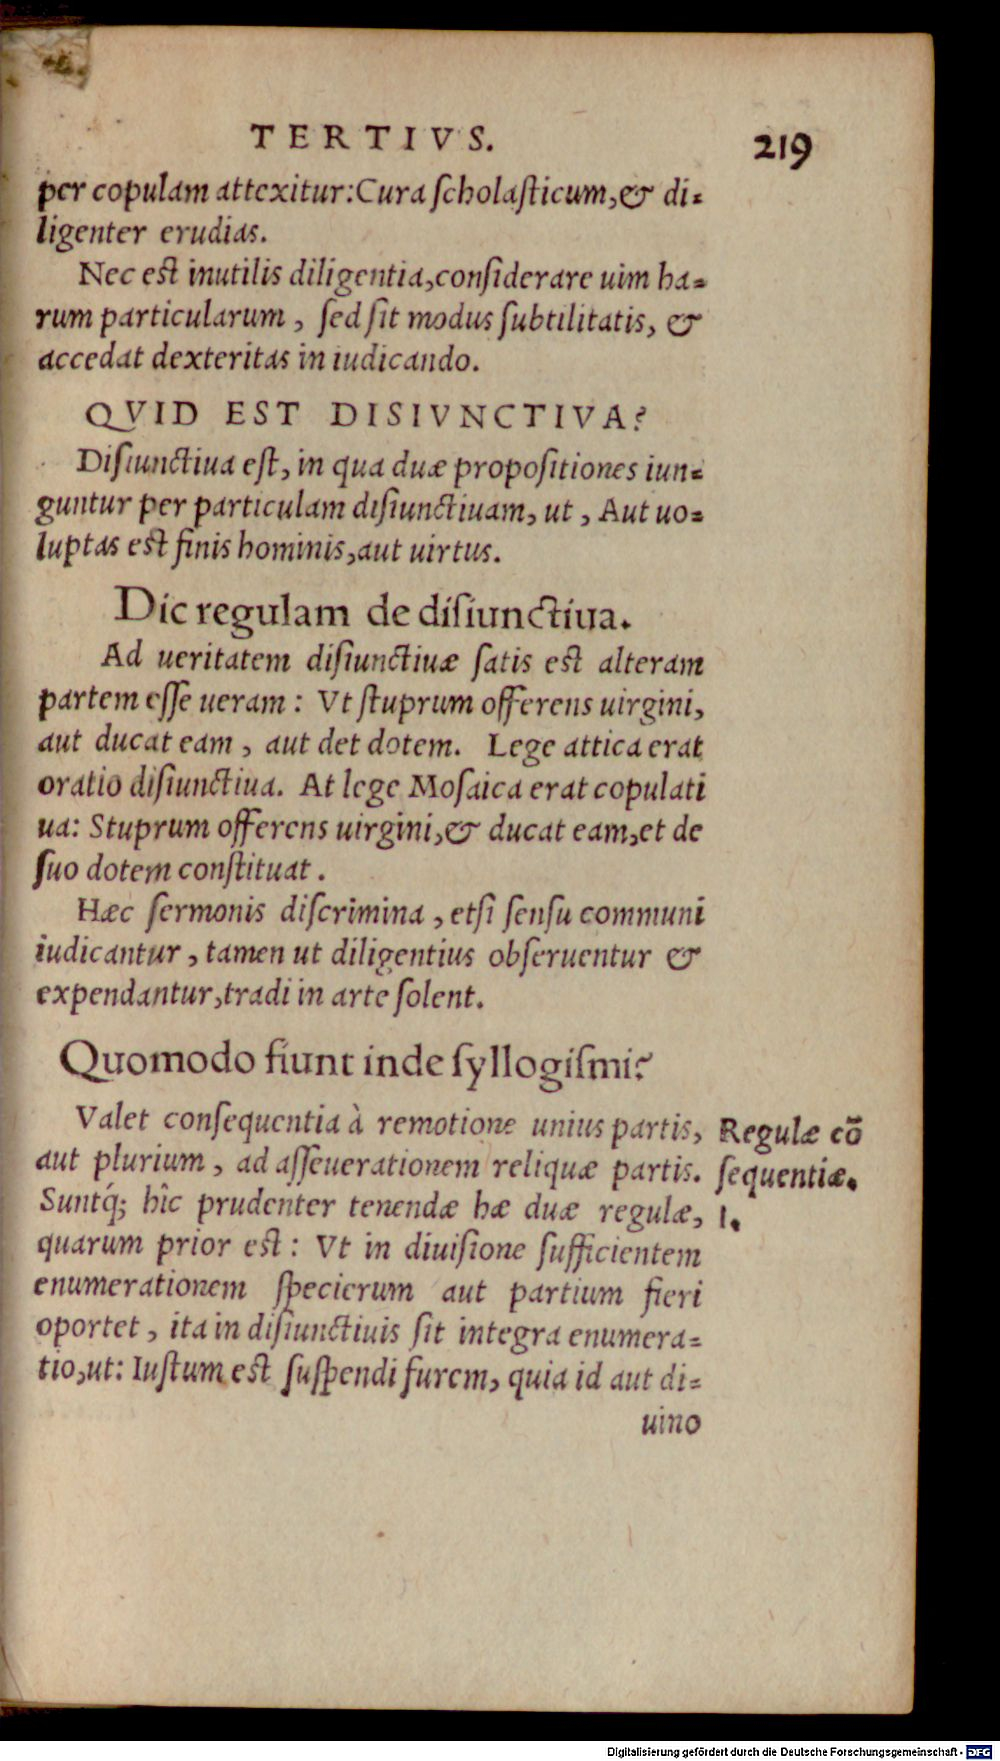 TERTIVS. 219
per copulam attexitur: Cura ſcholaſticum, & di⸗
ligenter erudias.
Nec est inutilis diligentia, conſiderare uim ha⸗
rum particularum, ſed ſit modus ſubtilitatis, &
accedat dexteritas in iudicando.
QVID EST DISIVNCTIVA?
Diſiunctiua eſt, in qua duæ propoſitiones iun⸗
guntur per particulam diſiunctiuam, ut, Aut uo⸗
luptas est finis hominis, aut uirtus.
Dic regulam de diſiunctiua.
Ad ueritatem diſiunctiuæ ſatis est alteram
partem eſſe ueram: Vt ſtuprum offerens uirgini,
aut ducat eam, aut det dotem. Lege attica erat
oratio diſiunctiua. At lege Moſaica erat copulati
ua: Stuprum offerens uirgini, & ducat eam, et de
ſuo dotem conſtituat.
Hæc ſermonis diſcrimina, etſi ſenſu communi
iudicantur, tamen ut diligentius obſeruentur &
expendantur, tradi in arte ſolent.
Quomodo fiunt inde ſyllogiſmi?
Valet conſequentia à remotione unius partis,
aut plurium, ad aſſeuerationem reliquæ partis.
Suntq́; hîc prudenter tenendæ hæ duæ regulæ,
quarum prior est: Vt in diuiſione ſufficientem
enumerationem ſpecierum aut partium fieri
oportet, ita in diſiunctiuis ſit integra enumera⸗
tio, ut: Iuſtum est ſuſpendi furem, quia id aut di⸗
uino
Regulæ cō
ſequentiæ.
I.
Digitalisierung gefördert durch die Deutsche Forschungsgemeinschaft - DFG